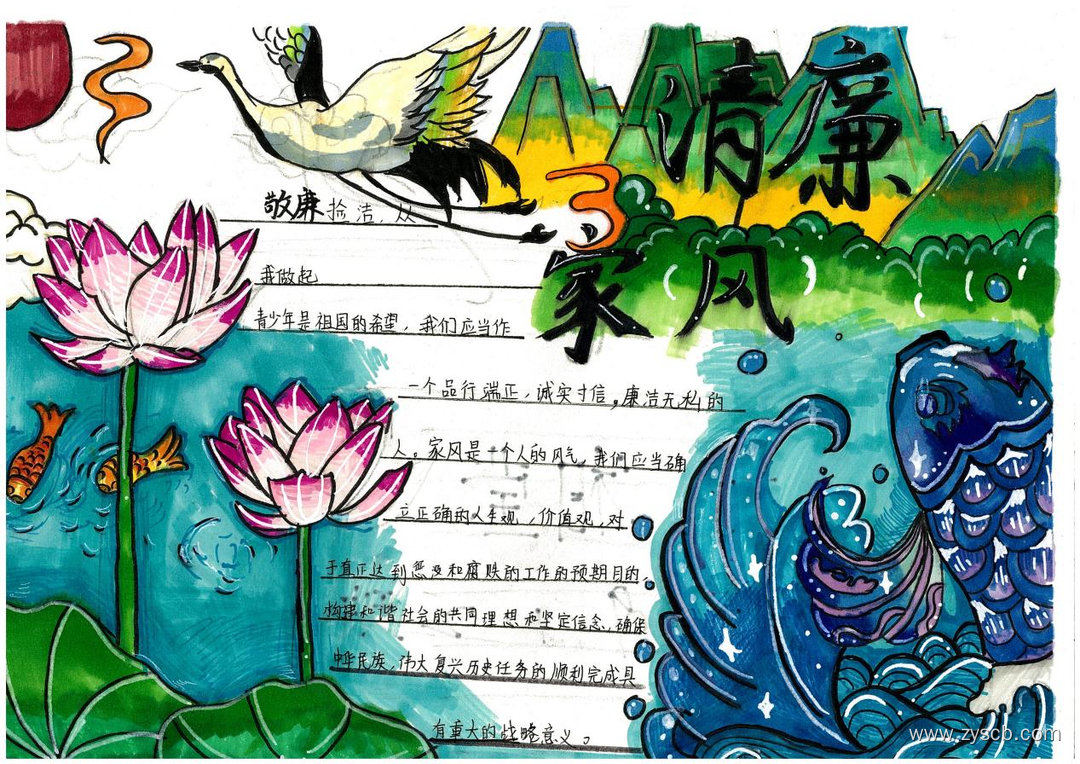 清廉
家风
敬廉捡洁,从
我做起
青少年是祖国的希望,我们应当作
一个品行端正,诚实寸信。廉洁无私的
人。家风是一个人的风气,我们应当确
立正确的人生观,价值观,对
于真正达到惩及和腐败的工作的预期目的,
构建和谐社会的共同理想和坚定信念、确保
中华民族,伟大复兴历史任务的顺利完成具
有重大的战略意义。
www.zyscb.com